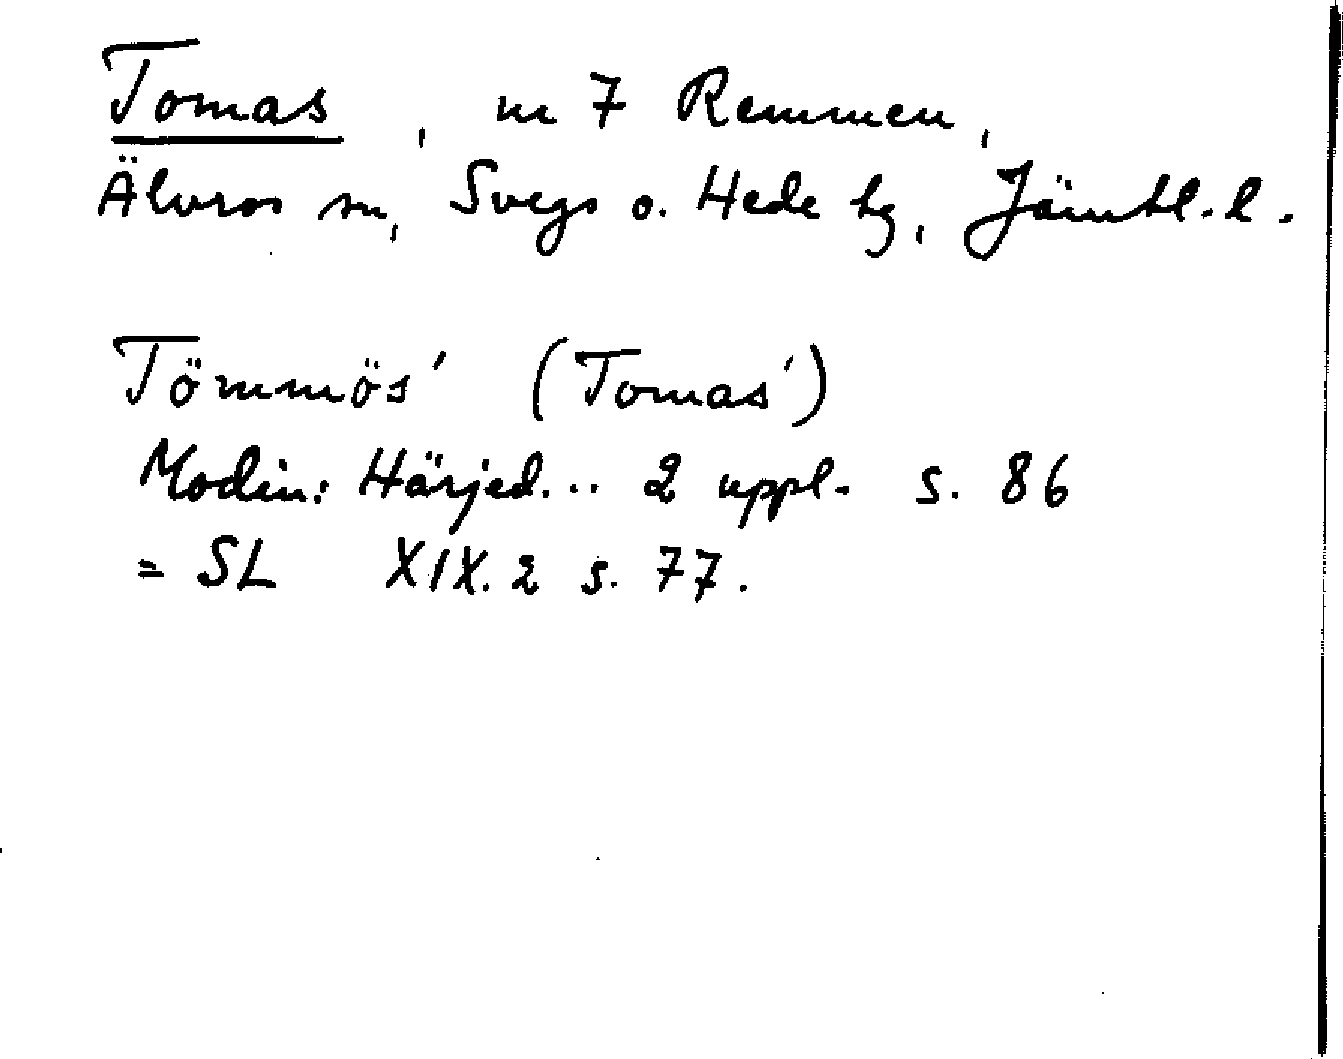 Tomas, nr 7 Remmen,
Älvros sn, Svegs o. Hede hg, Jämtl. l.
Tömmös' (Tomas')
Modin: Härjed... 2 uppl. s. 86
= SL XIX. 2 s. 77.